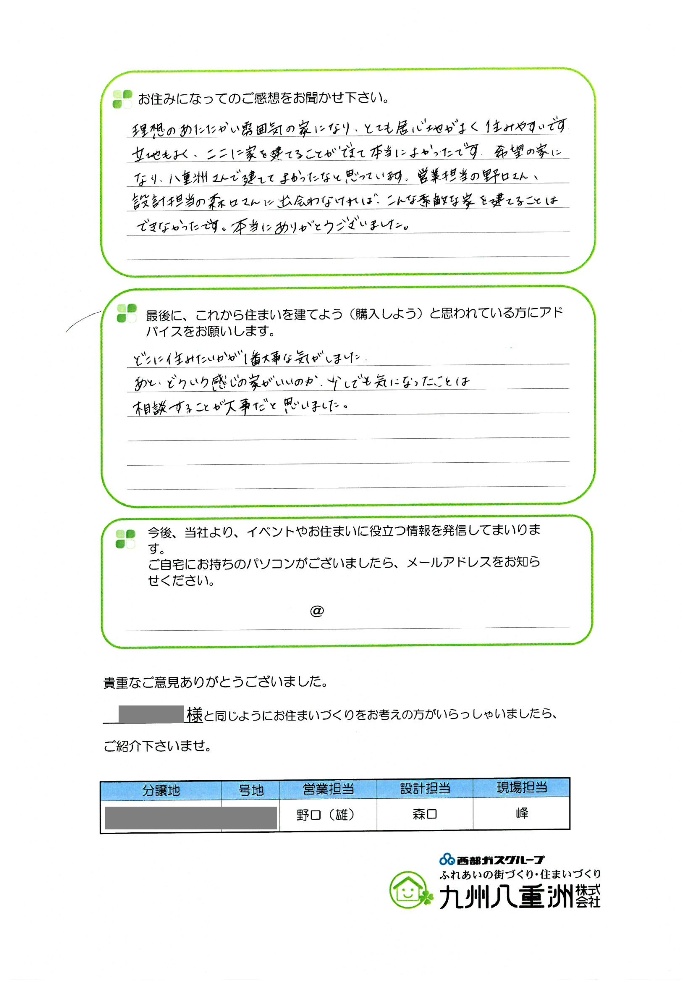 お住みになってのご感想をお聞かせ下さい。
理想のあたたかい雰囲気の家になり、とても居心地がよく住みやすいです
立地もよく、ここに家を建てることができて本当によかったです。希望の家に
なり、八重洲さんで建ててよかったなと思っています。営業担当の野口さん、
設計担当の森口さんに出会わなければ、こんな素敵な家を建てることは
できなかったです。本当にありがとうございました。
最後に、これから住まいを建てよう（購入しよう）と思われている方にアド
バイスをお願いします。
どこに住みたいかが1番大事な気がしました。
あと、どういう感じの家がいいのか、少しでも気になったことは
相談することが大事だと思いました。
今後、当社より、イベントやお住まいに役立つ情報を発信してまいりま
す。
ご自宅にお持ちのパソコンがございましたら、メールアドレスをお知ら
せください。
@
貴重なご意見ありがとうございました。
様と同じようにお住まいづくりをお考えの方がいらっしゃいましたら、
ご紹介下さいませ。
分譲地 号地 営業担当 設計担当 現場担当
野口（雄） 森口 峰
西部ガスグループ
ふれあいの街づくり・住まいづくり
九州八重洲株式会社